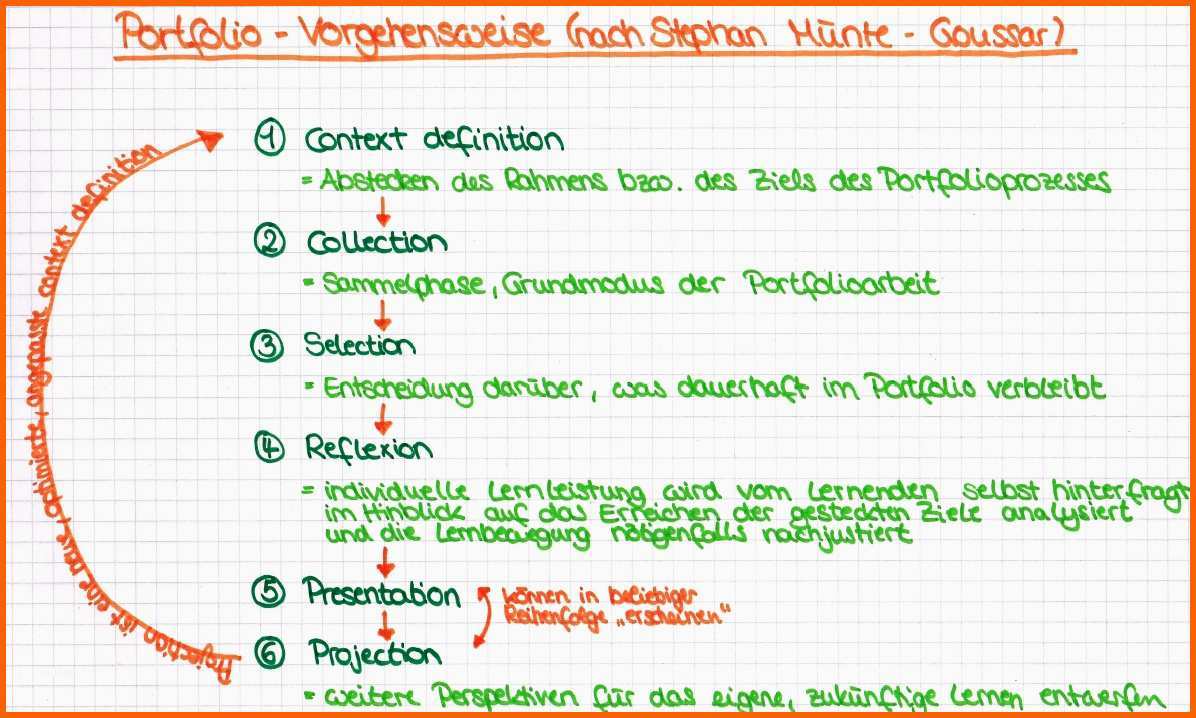 Portfolio - Vorgehensweise (nach Stephan Münte - Goussar)
① Context definition
= Abstecken des Rahmens bzw. des Ziels des Portfolioprozesses
② Collection
= Sammelphase, Grundmodus der Portfolioarbeit
③ Selection
= Entscheidung darüber, was dauerhaft im Portfolio verbleibt
④ Reflexion
= individuelle Lernleistung wird vom Lernenden selbst hinterfragt
im Hinblick auf das Erreichen der gesteckten Ziele analysiert
und die Lernbewegung nötigenfalls nachjustiert
⑤ Presentation
können in beliebiger
Reihenfolge „erscheinen“
⑥ Projection
= weitere Perspektiven für das eigene, zukünftige Lernen entwerfen
Projection ist eine neue, optimierte, angepasste context definition